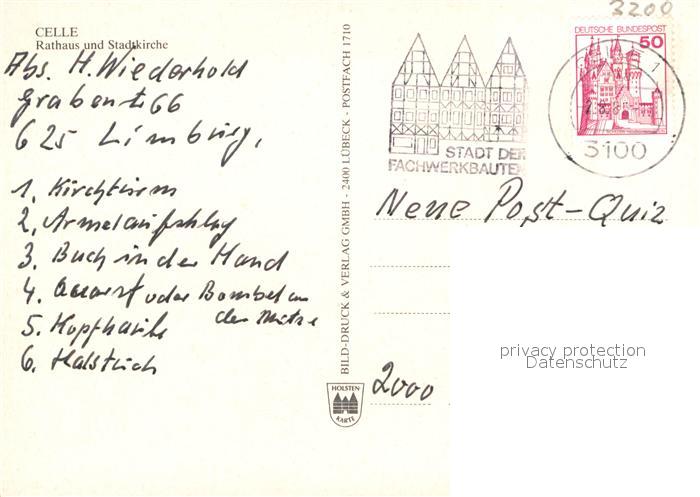 3200
CELLE
Rathaus und Stadtkirche
Abs. H. Wiederhold
Grabenstr 66
625 Limburg,
1. Kirchturm
2. Ärmelaufschlag
3. Buch in der Hand
4. oder Bombel an
der Mütze
5. Kopfhaube
6. Halstuch
BILD-DRUCK & VERLAG GMBH - 2400 LÜBECK - POSTFACH 1710
HOLSTEN
KARTE
STADT DER
FACHWERKBAUTEN
DEUTSCHE BUNDESPOST
50
1
3100
Neue Post-Quiz
2000
privacy protection
Datenschutz